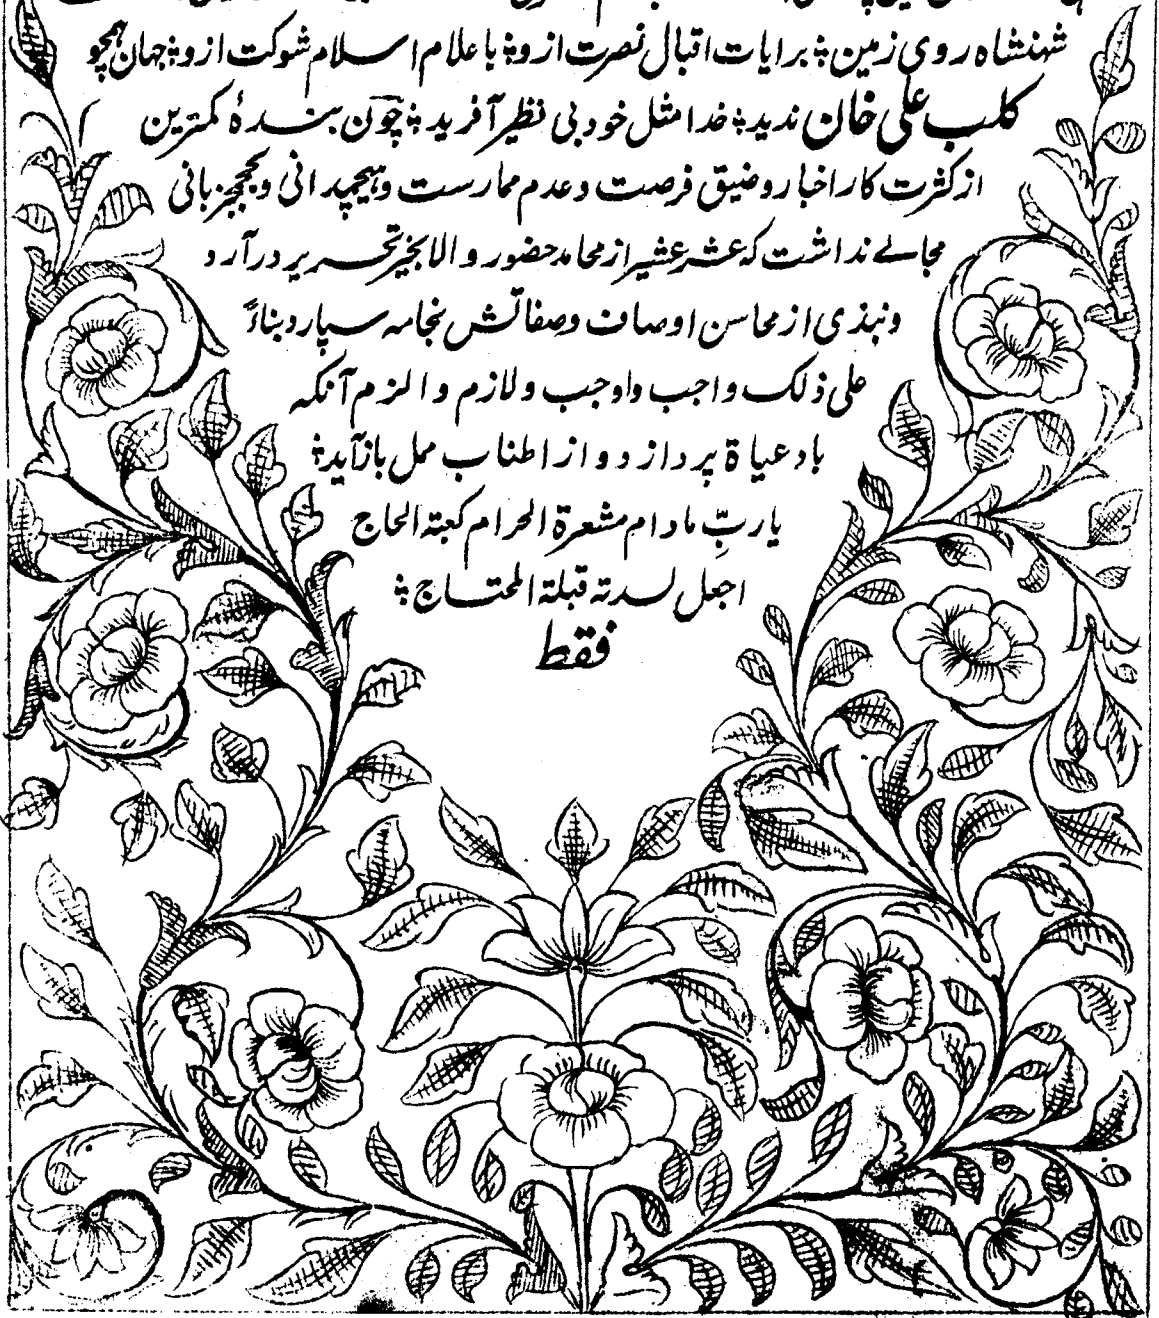 شهنشاه روی زمین ؛ برایات اقبال نصرت ازو ؛ باعلام اسلام شوکت ازو ؛ جهان همچو
کلب علی خان ندید ؛ خدا مثل خود بی نظیر آفرید ؛ چون بندهٔ کمترین
از کثرت کار اخبار و ضیق فرصت و عدم ممارست و هیچمدانی و کجمج زبانی
مجالے نداشت که عشر عشیر از محامد حضور والا بخیز تحریر در آرد
و نبذی از محاسن اوصاف و صفاتش بخامه سپارد بناءً
علی ذلک واجب واوجب ولازم والزم آنکه
بادعیاة پردازد و از اطناب ممل بازآید ؛
یا ربِّ مادام مشعرة الحرام کعبة الحاج
اجعل لسدته قبلة المحتاج ؛
فقط